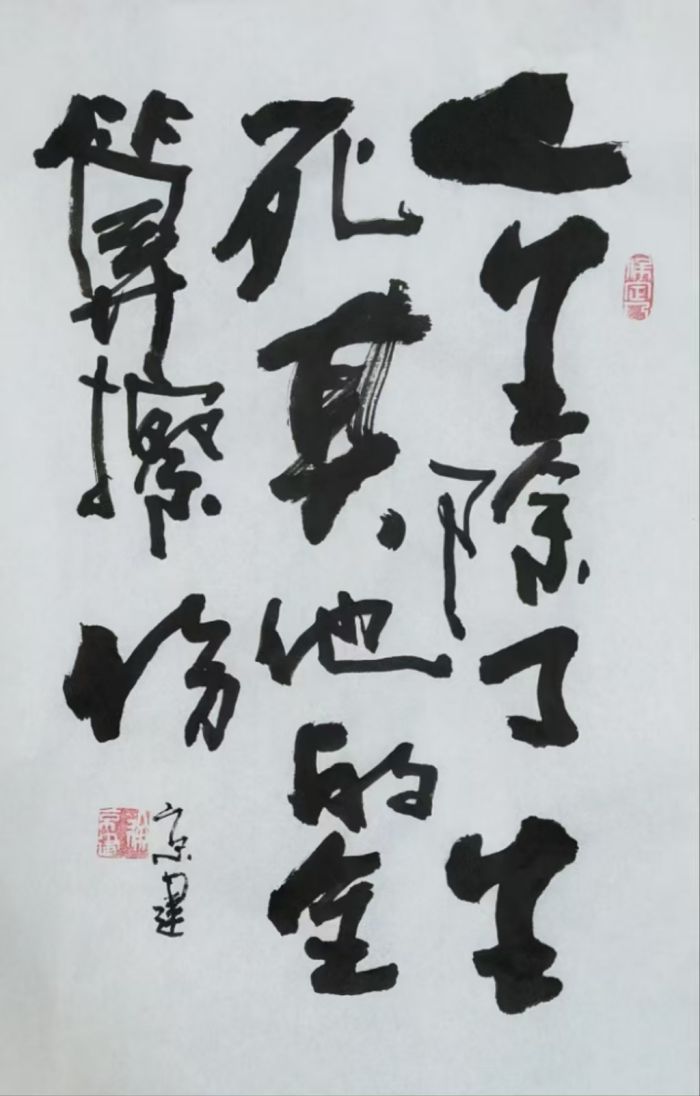 人生除了生
死其他的全
算擦伤
京建